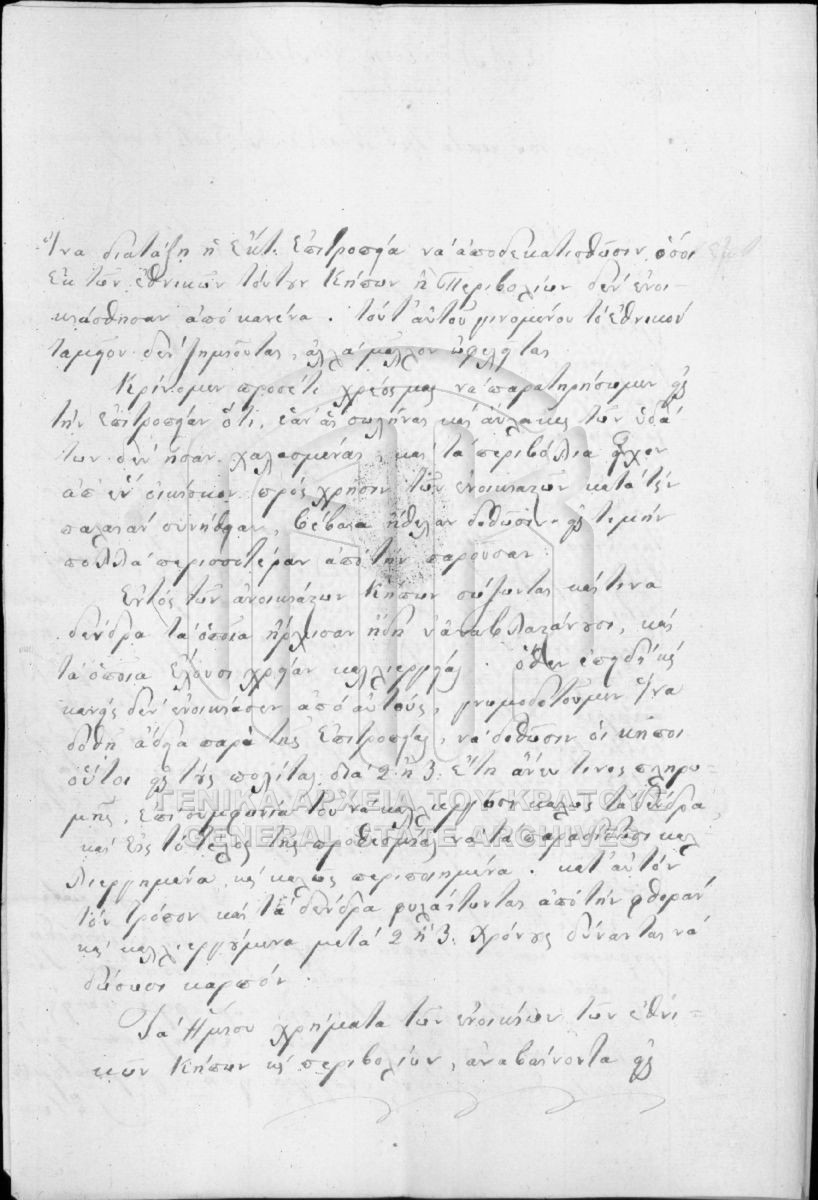 Ἵνα διατάξη ἡ Σεκτ. Ἐπιτροπεία νὰ ἀποδεκατισθῶσιν, ὅσοι
ἐκ τῶν ἐθνικῶν τούτων Κήπων ἢ Περιβολίων δὲν ἐνοι-
κιάσθησαν ἀπὸ κανένα. τούτ' αὐτοῦ γινομένου τὸ ἐθνικὸν
ταμεῖον δὲν ζημιοῦται, ἀλλὰ μᾶλλον ὠφελεῖται.
Κρίνομεν προσέτι χρέος μας νὰ παρατηρήσωμεν εἰς
τὴν ἐπιτροπείαν ὅτι, ἐὰν οἱ σωλῆνας καὶ αὔλακες τῶν ὑδά
των δὲν ἦσαν χαλασμένας, καὶ τὰ περιβόλια εἶχον
ἀπ' ἓν οἰκίσκον πρὸς χρῆσιν τῶν ἐνοικιαστῶν κατὰ τὴν
παλαιὰν συνήθειαν, βέβαια ἤθελαν δοθῶσιν εἰς τιμὴν
πολλὰ περισσοτέραν ἀπὸ τὴν παροῦσαν.
Ἐντὸς τῶν ἀνοικιάστων Κήπων σώζονται καὶ τινα
δένδρα τὰ ὁποῖα ἤρχισαν ἤδη ν' ἀναβλαστάνωσι, καὶ
τὰ ὁποῖα ἔχουσι χρείαν καλλιεργείας. ὅθεν ἐπειδὴ καὶ
κανεὶς δὲν ἐνοικίασεν ἀπὸ αὐτούς, γνωμοδοτοῦμεν ἵνα
δοθῇ ἄδεια παρὰ τῆς Ἐπιτροπείας, νὰ δοθῶσιν οἱ κῆποι
οὗτοι εἰς τοὺς πολίτας διὰ 2 ἢ 3: ἔτη ἄνευ τινος πληρω-
μῆς, ἐπὶ συμφωνίᾳ τοῦ νὰ καλλιεργῶσι καλῶς τὰ δένδρα,
καὶ εἰς τὸ τέλος τῆς προθεσμίας νὰ τὰ παραδίδωσι καλ
λιεργημένα, καὶ καλῶς περιποιημένα. κατ' αὐτὸν
τὸν τρόπον καὶ τὰ δένδρα φυλάττονται ἀπὸ τὴν φθορὰν
καὶ καλλιεργούμενα μετὰ 2 ἢ 3: χρόνους δύνανται νὰ
δώσωσι καρπόν.
Τὰ ἥμισυ χρήματα τῶν ἐνοικίων τῶν ἐθνι-
κῶν Κήπων καὶ περιβολίων, ἀναβαίνοντα εἰς
ΓΕΝΙΚΑ ΑΡΧΕΙΑ ΤΟΥ ΚΡΑΤΟΥΣ
GENERAL STATE ARCHIVES